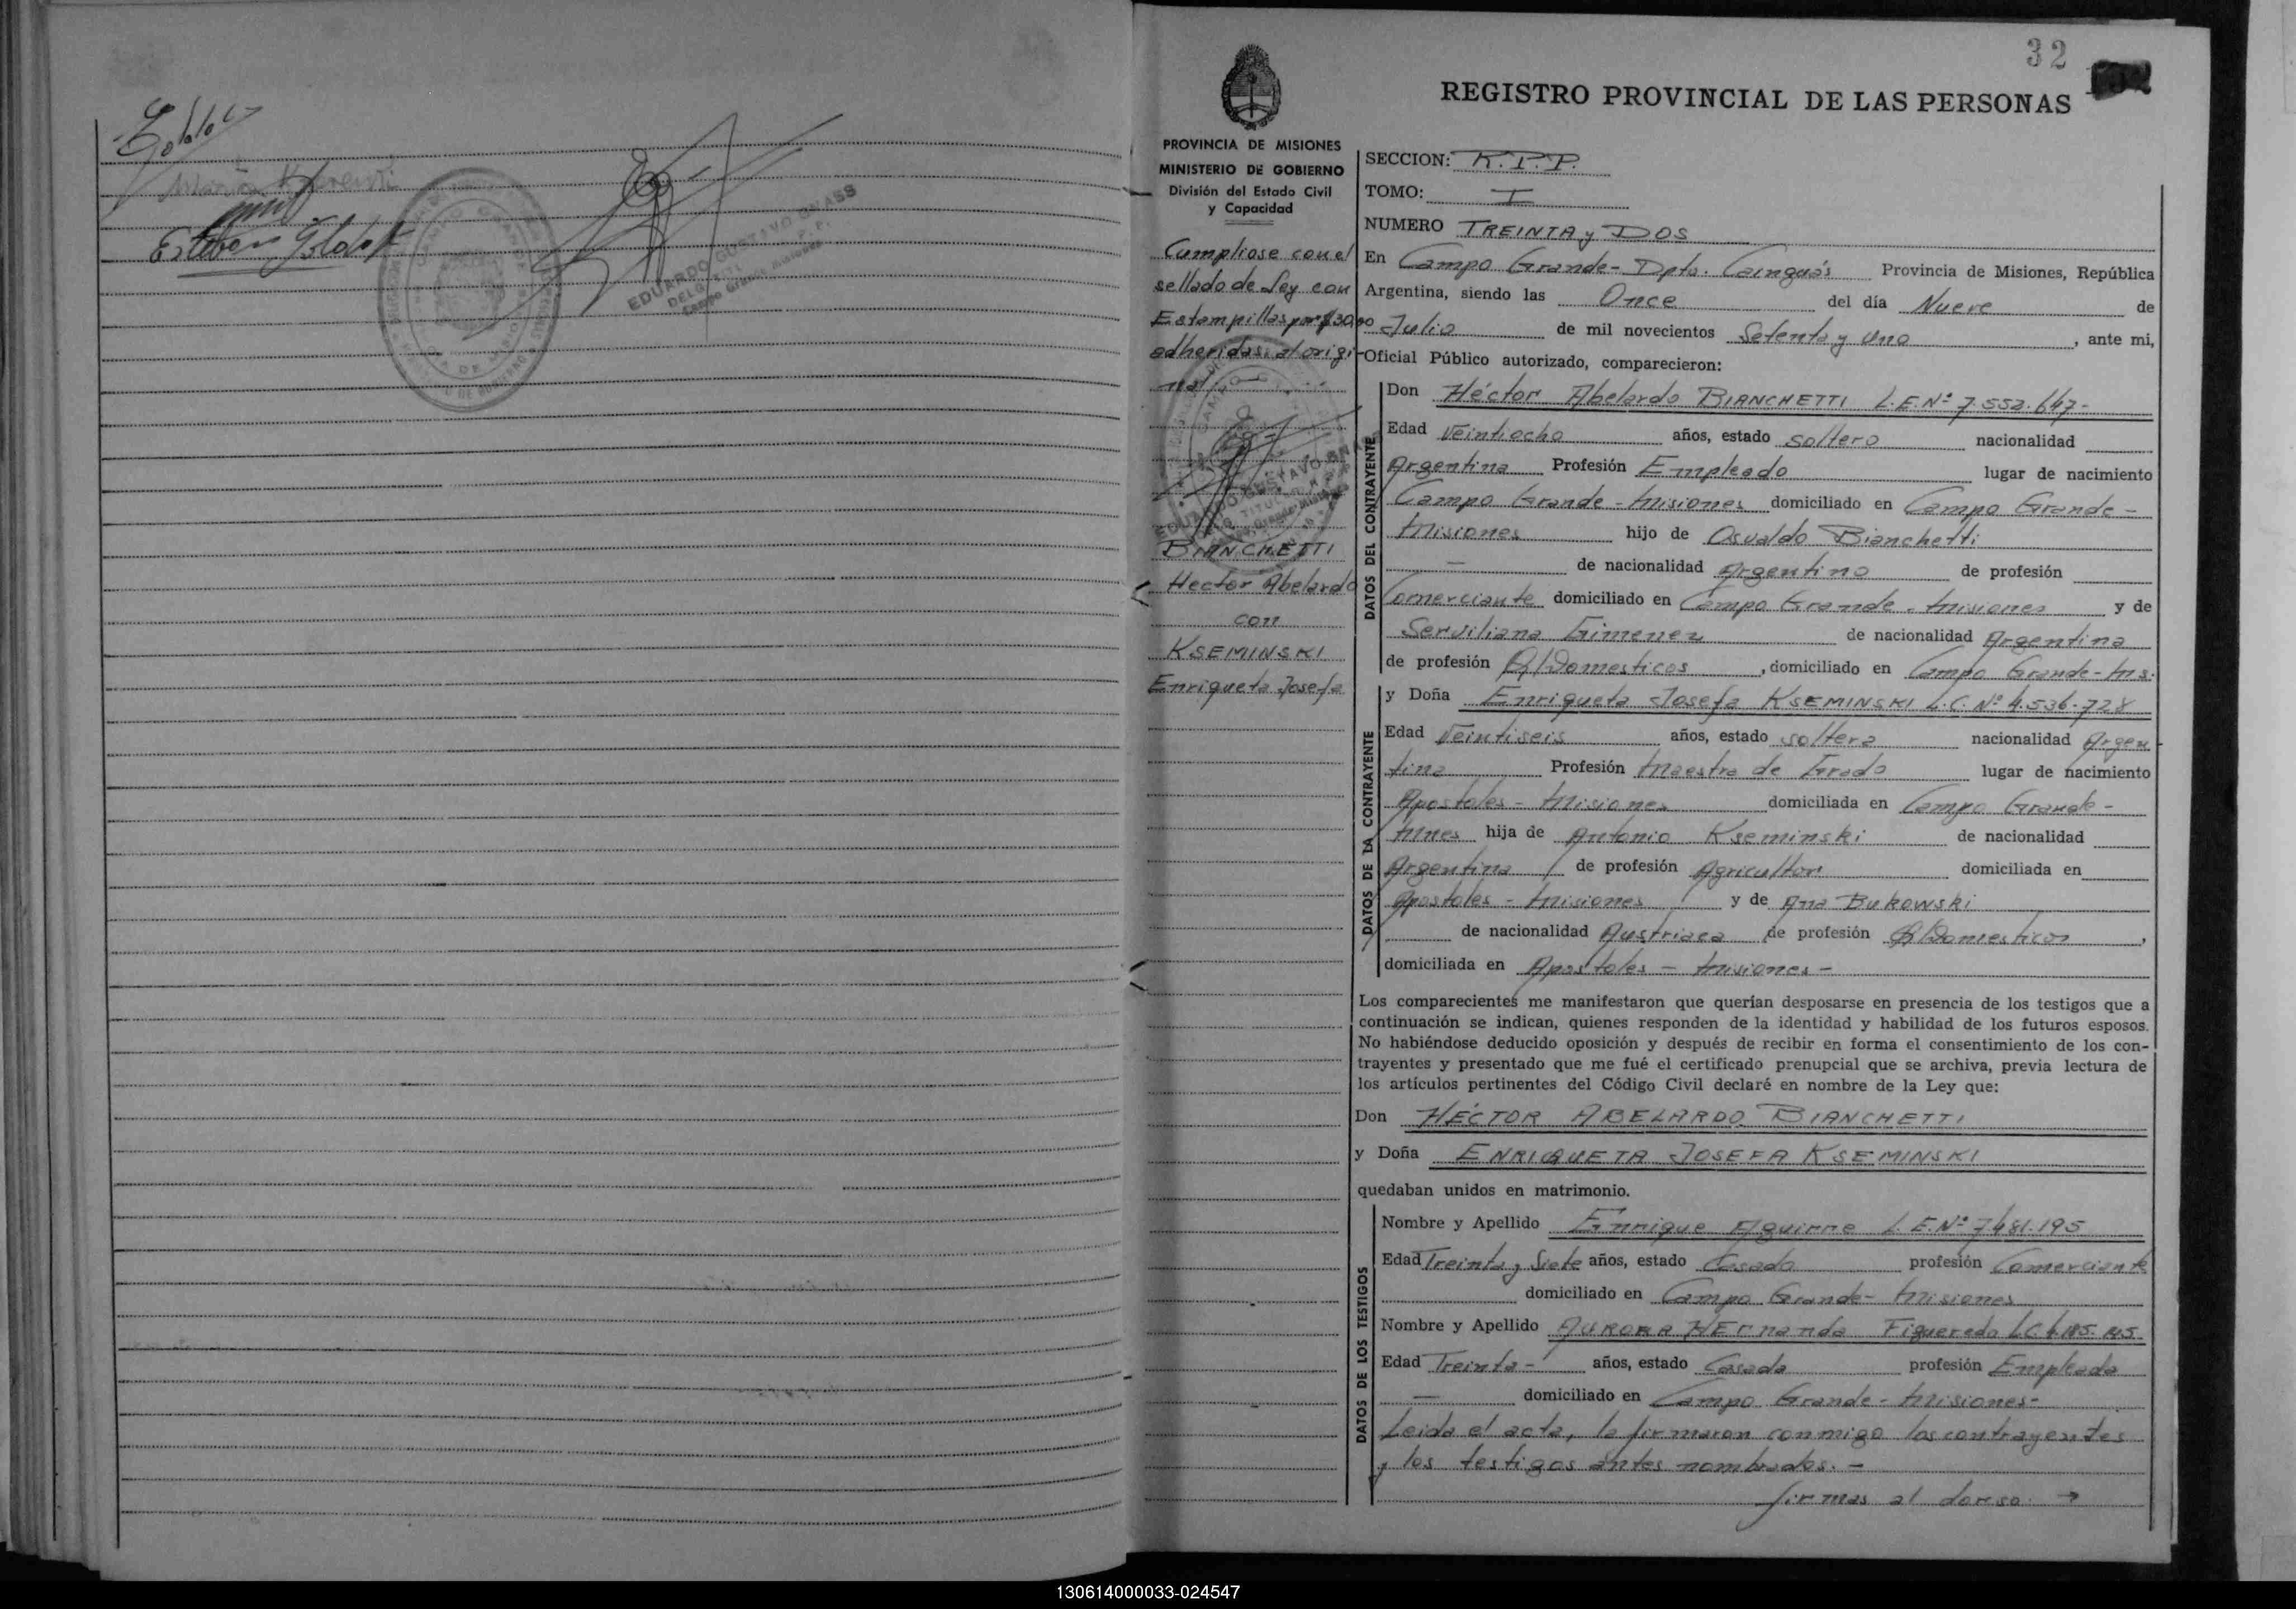 Esteban
EDUARDO GUSTAVO
32
REGISTRO PROVINCIAL DE LAS PERSONAS
PROVINCIA DE MISIONES
MINISTERIO DE GOBIERNO
División del Estado Civil
y Capacidad
Cumpliose con el
sellado de Ley con
Estampillas por $30,00
adheridas al origi-
nal
BIANCHETTI
Hector Abelardo
con
KSEMINSKI
Enriqueta Josefa
SECCION: R.P.P.
TOMO: I
NUMERO TREINTA y DOS
En Campo Grande - Dpto. Cainguás Provincia de Misiones, República
Argentina, siendo las Once del día Nueve de
Julio de mil novecientos Setenta y Uno, ante mi,
Oficial Público autorizado, comparecieron:
DATOS DEL CONTRAYENTE
Don Héctor Abelardo BIANCHETTI L.E.Nº 7.552.647-
Edad Veintiocho años, estado soltero nacionalidad
Argentina Profesión Empleado lugar de nacimiento
Campo Grande - Misiones domiciliado en Campo Grande -
Misiones hijo de Osvaldo Bianchetti
— de nacionalidad Argentino de profesión
Comerciante domiciliado en Campo Grande - Misiones y de
Serviliana Gimenez de nacionalidad Argentina
de profesión Q/Domesticos, domiciliado en Campo Grande - Mns.
DATOS DE LA CONTRAYENTE
y Doña Enriqueta Josefa KSEMINSKI L.C. Nº 4.536.728
Edad Veintiseis años, estado soltera nacionalidad Argen-
tina Profesión Maestra de Grado lugar de nacimiento
Apostoles - Misiones domiciliada en Campo Grande -
Mnes hija de Antonio Kseminski de nacionalidad
Argentina de profesión Agricultor domiciliada en
Apostoles - Misiones y de Ana Bukowski
de nacionalidad Austriaca de profesión Q/Domesticos,
domiciliada en Apostoles - Misiones -
Los comparecientes me manifestaron que querían desposarse en presencia de los testigos que a
continuación se indican, quienes responden de la identidad y habilidad de los futuros esposos.
No habiéndose deducido oposición y después de recibir en forma el consentimiento de los con-
trayentes y presentado que me fué el certificado prenupcial que se archiva, previa lectura de
los artículos pertinentes del Código Civil declaré en nombre de la Ley que:
Don HÉCTOR ABELARDO BIANCHETTI
y Doña ENRIQUETA JOSEFA KSEMINSKI
quedaban unidos en matrimonio.
DATOS DE LOS TESTIGOS
Nombre y Apellido Enrique Aguirre L.E.Nº 7.481.195
Edad Treinta y Siete años, estado Casado profesión Comerciante
domiciliado en Campo Grande - Misiones
Nombre y Apellido AURORA HErnanda Figueredo L.C.
Edad Treinta - años, estado Casada profesión Empleada
— domiciliado en Campo Grande - Misiones -
Leida el acta, la firmaron conmigo los contrayentes
y los testigos antes nombrados. -
firmas al dorso →
130614000033-024547